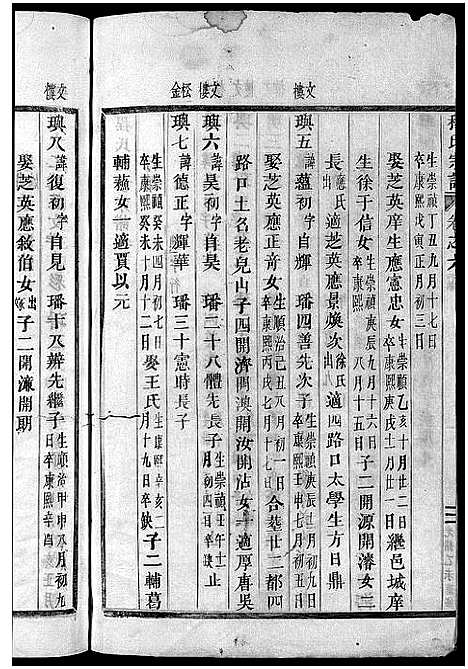 程氏宗譜 卷之六
生崇禎丁丑九月十七日
卒康熙戊寅正月初三日
娶芝英庠生應憲忠女 生崇禎乙亥十月廿二
卒康熙庚戌十二月 繼邑城庠
生徐于信女 生崇禎庚辰九月十六日
卒康熙 八月十五日 子二開源開濬女二
長 應氏出 適芝英應景煥次 徐氏出 適四路口太學生方日鼎
文樓
璵五 諱 初字 璠四善先次子 生崇禎庚辰三月初
娶芝英應正奇女 生順治己丑八月初一日
卒康熙丙戌七月十七日 合塟廿二都四
路口土名老兒山子四開濟開澳開汝開沾女一適厚唐吳
文樓
璵六 諱昊初字 璠二十八體先長子 生崇禎壬午十一
月 卒康熙 止
松金
璵七 諱德正字輝華 璠三十憲時長子
生崇禎癸未四月初七日
卒康熙癸未十月十二日 娶王氏 生康熙辛亥二
月十九日卒缺 子二輔葛
輔蕬女一適賈以元
文樓
璵八 諱復初字自見 璠十乃辨先繼子 生順治甲申八月初九
日卒康熙辛 正月
娶芝英應敘伯女 子二開濂開期